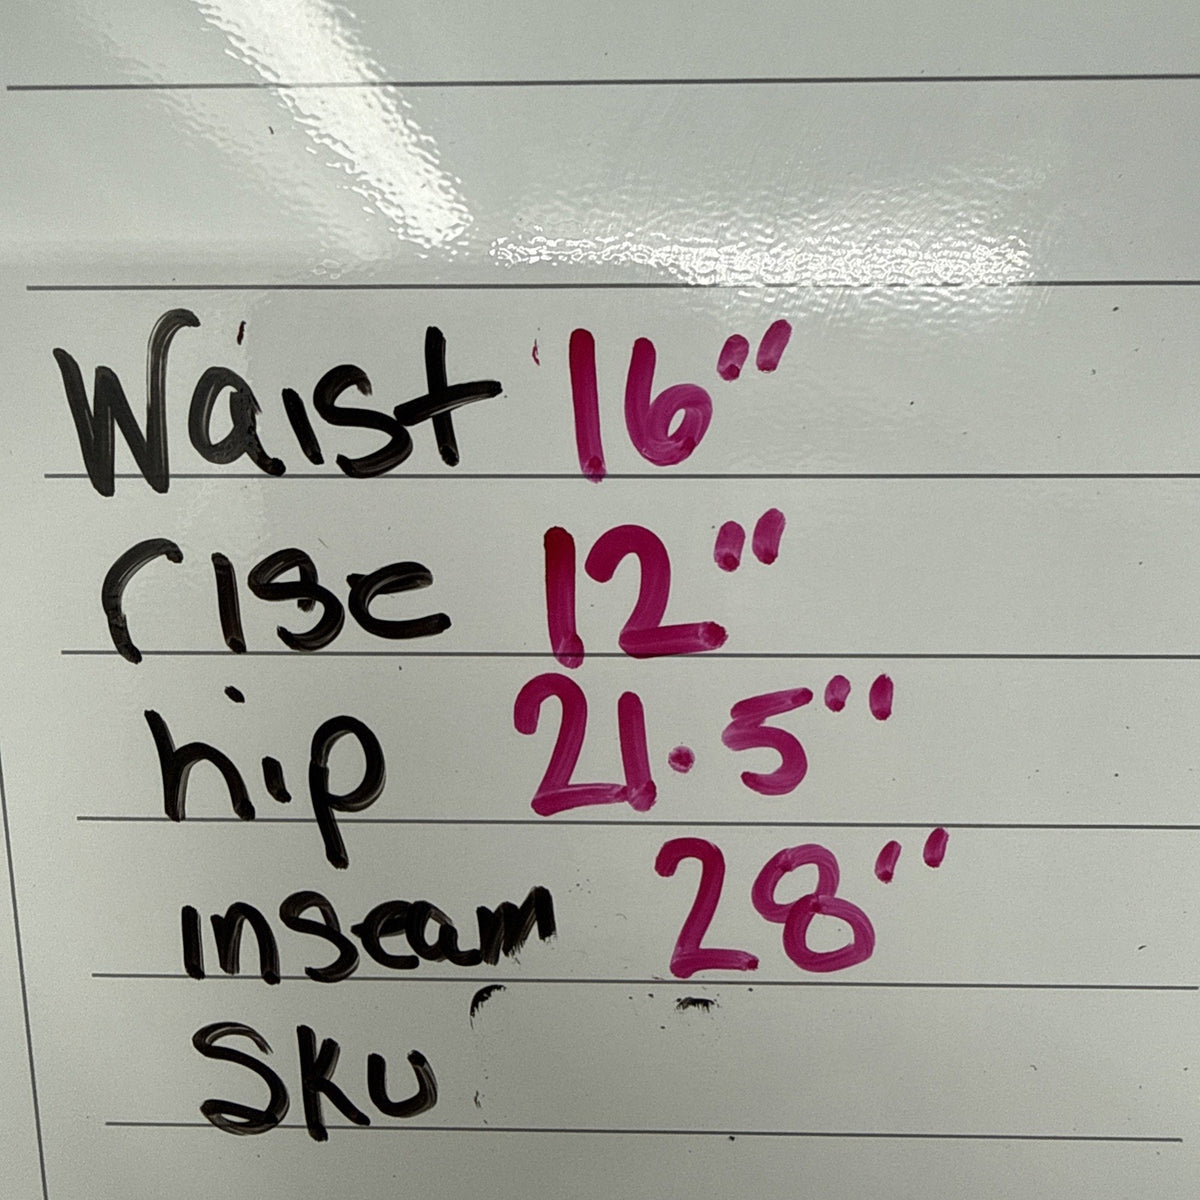 Waist 16"
rise 12"
hip 21.5"
inseam 28"
SKU